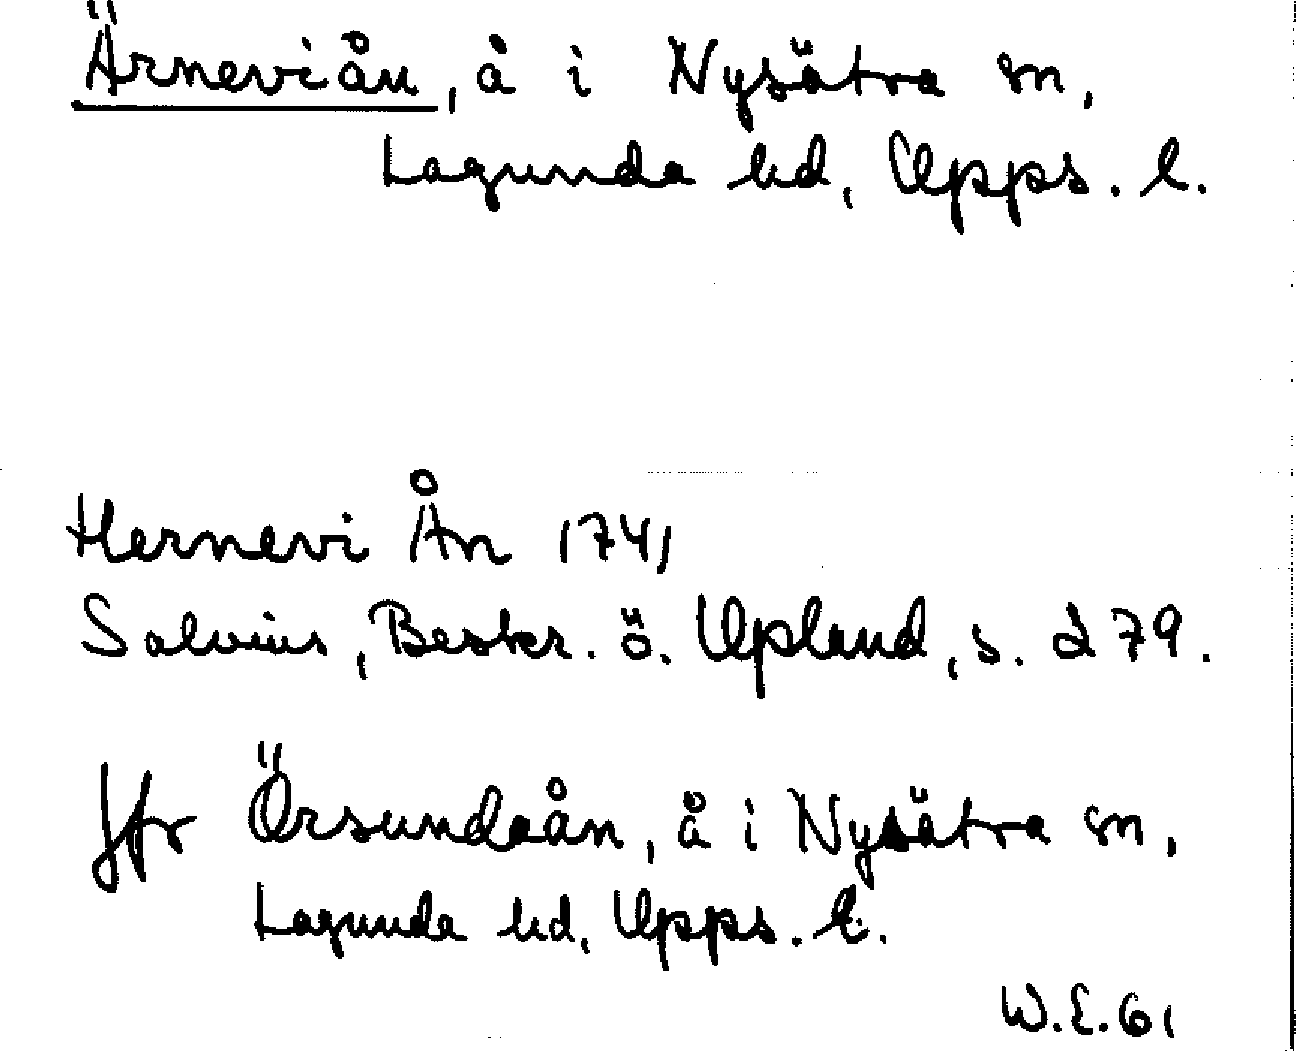 Ärnevián, å i Nysätra sn,
Lagunda hd, Upps. l.
Hernevi Ån 1741
Salvius, Beskr. ö. Upland, s. 279.
Jfr Örsundaån, å i Nysätra sn,
Lagunda hd, Upps. l.
W.E.61